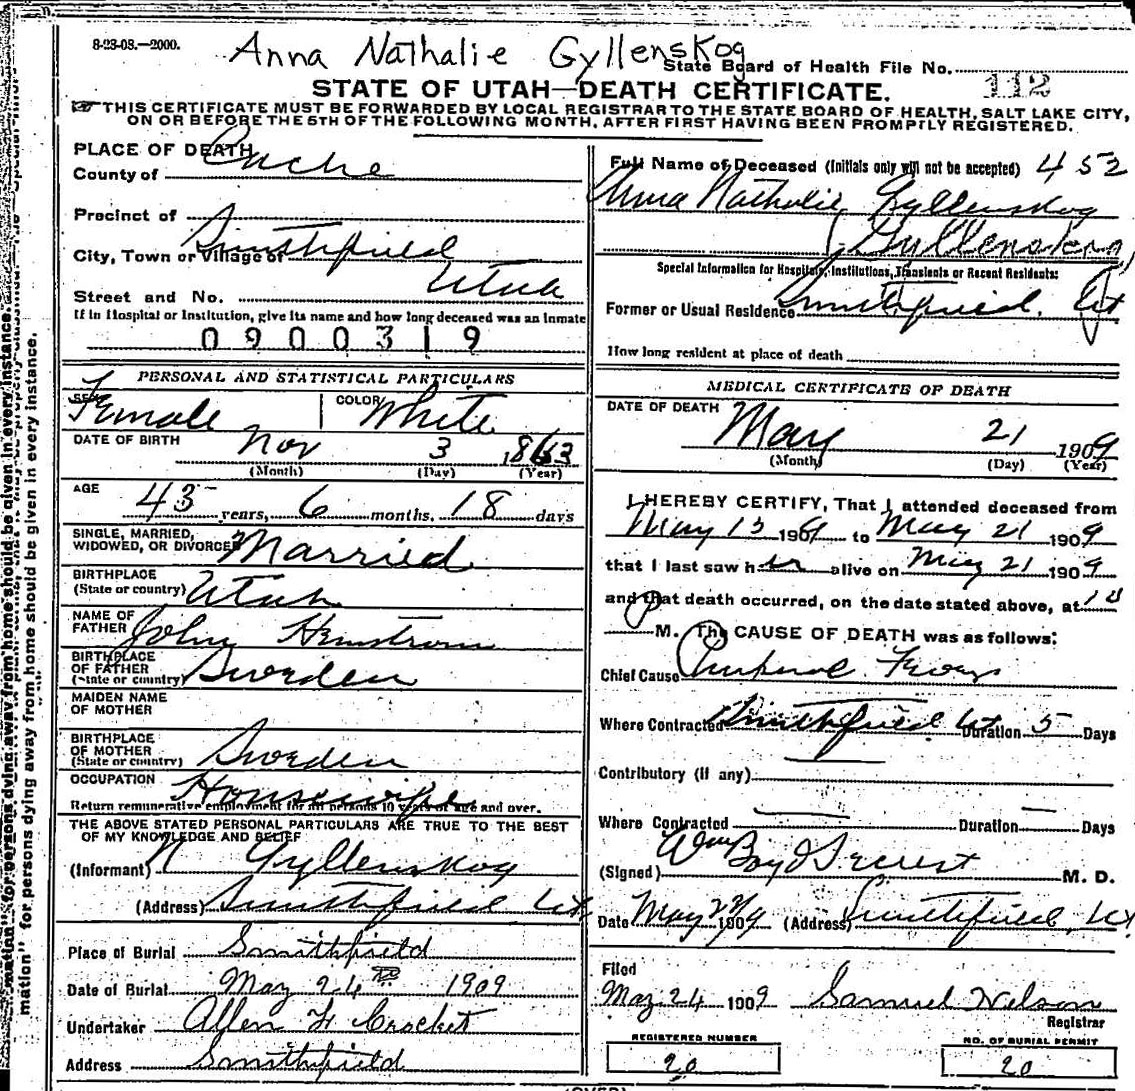 8-23-08.—2000.
Anna Nathalie Gyllenskog
State Board of Health File No. 112
STATE OF UTAH—DEATH CERTIFICATE.
THIS CERTIFICATE MUST BE FORWARDED BY LOCAL REGISTRAR TO THE STATE BOARD OF HEALTH, SALT LAKE CITY,
ON OR BEFORE THE 5TH OF THE FOLLOWING MONTH, AFTER FIRST HAVING BEEN PROMPTLY REGISTERED.
PLACE OF DEATH
County of Cache
Precinct of
City, Town or Village of Smithfield
Utah
Street and No.
If in Hospital or Institution, give its name and how long deceased was an inmate
0900319
PERSONAL AND STATISTICAL PARTICULARS
SEX Female COLOR White
DATE OF BIRTH Nov 3 1863
(Month) (Day) (Year)
AGE
45 years, 6 months, 18 days
SINGLE, MARRIED,
WIDOWED, OR DIVORCED Married
BIRTHPLACE
(State or country) Utah
NAME OF
FATHER John
BIRTHPLACE
OF FATHER
(State or country) Sweden
MAIDEN NAME
OF MOTHER
BIRTHPLACE
OF MOTHER
(State or country) Sweden
OCCUPATION Housewife
Return remunerative employment for all persons 10 years of age and over.
THE ABOVE STATED PERSONAL PARTICULARS ARE TRUE TO THE BEST
OF MY KNOWLEDGE AND BELIEF
(Informant) N Gyllenskog
(Address) Smithfield Ut
Place of Burial Smithfield
Date of Burial May 24th 1909
Undertaker Allen F Crocket
Address Smithfield
Full Name of Deceased (Initials only will not be accepted) 452
Anna Nathalie Gyllenskog
(Gyllenskog)
Special Information for Hospitals, Institutions, Transients or Recent Residents:
Former or Usual Residence Smithfield. Ut
How long resident at place of death
MEDICAL CERTIFICATE OF DEATH
DATE OF DEATH
May 21 1909
(Month) (Day) (Year)
I HEREBY CERTIFY, That I attended deceased from
May 13 1909 to May 21 1909
that I last saw her alive on May 21 1909
and that death occurred, on the date stated above, at
M. The CAUSE OF DEATH was as follows:
Chief Cause Puerperal Fever
Where Contracted Smithfield Ut Duration 5 Days
Contributory (if any)
Where Contracted — Duration — Days
(Signed) Wm Boyd M. D.
Date May 1909 (Address) Smithfield, Ut
Filed
May 24 1909 Samuel Nelson
Registrar
REGISTERED NUMBER
20
NO. OF BURIAL PERMIT
20
(OVER)
mation" for persons dying away from home should be given in every instance.